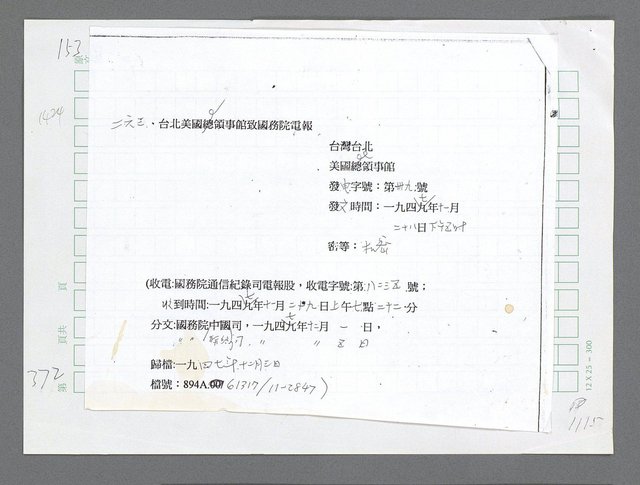 153
1424
二六三、台北美國總領事館致國務院電報
台灣台北
美國總領事館
發文字號：第卅九號
發文時間：一九四九年十一月
二十八日下午五時
密等：
(收電:國務院通信紀錄司電報股，收電字號:第八二三五號；
收到時間:一九四九年十一月二十九日上午七點二十二分
分文:國務院中國司，一九四七年十二月一日，
〃〃 〃 五日
歸檔:一九四七年十二月三日
檔號：894A.00/61317/11-2847)
頁
頁共
第
372
12 X 25 - 300
1115